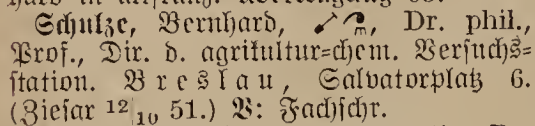 Schulze, Bernhard, Dr. phil.,
Prof., Dir. d. agrikultur=chem. Versuchs=
station. Breslau, Salvatorplatz 6.
(Ziesar 12/10 51.) V: Fachschr.